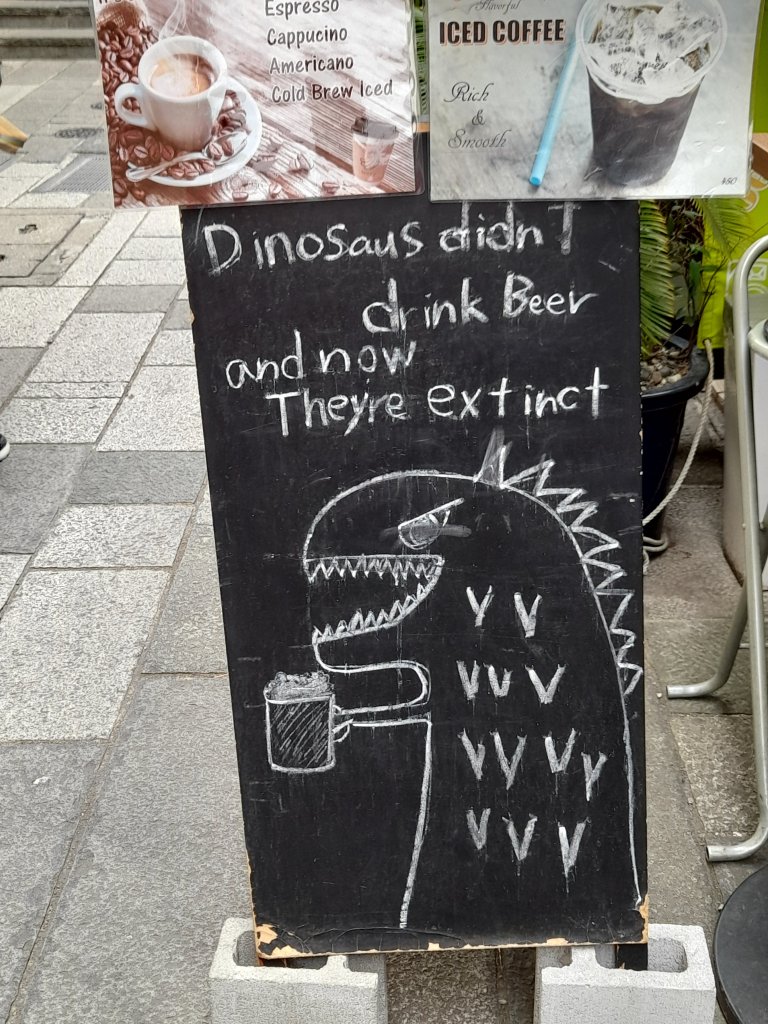 Espresso
Cappucino
Americano
Cold Brew Iced
Flavorful
ICED COFFEE
Rich
&
Smooth
450
Dinosaus didn't
drink Beer
and now
They're extinct